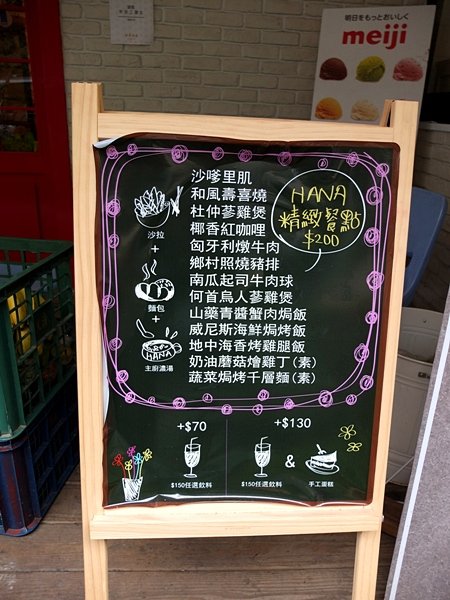 明日をもっとおいしく
meiji
沙嗲里肌
和風壽喜燒
杜仲蔘雞煲
椰香紅咖哩
匈牙利燉牛肉
鄉村照燒豬排
南瓜起司牛肉球
何首烏人蔘雞煲
山藥青醬蟹肉焗飯
威尼斯海鮮焗烤飯
地中海香烤雞腿飯
奶油蘑菇燴雞丁(素)
蔬菜焗烤千層麵(素)
HANA
精緻餐點
$200
沙拉
+
麵包
+
HANA
主廚濃湯
+$70
$150任選飲料
+$130
&
$150任選飲料
手工蛋糕